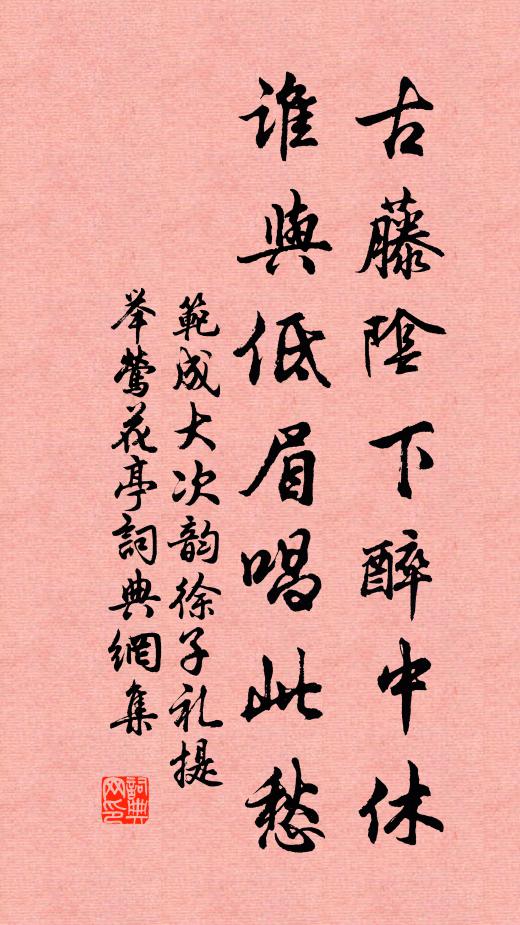 古藤陰下醉中休
誰與低眉唱此愁
範成大次韵徐子礼提
举鶯花亭詞典網集
詞典
网印